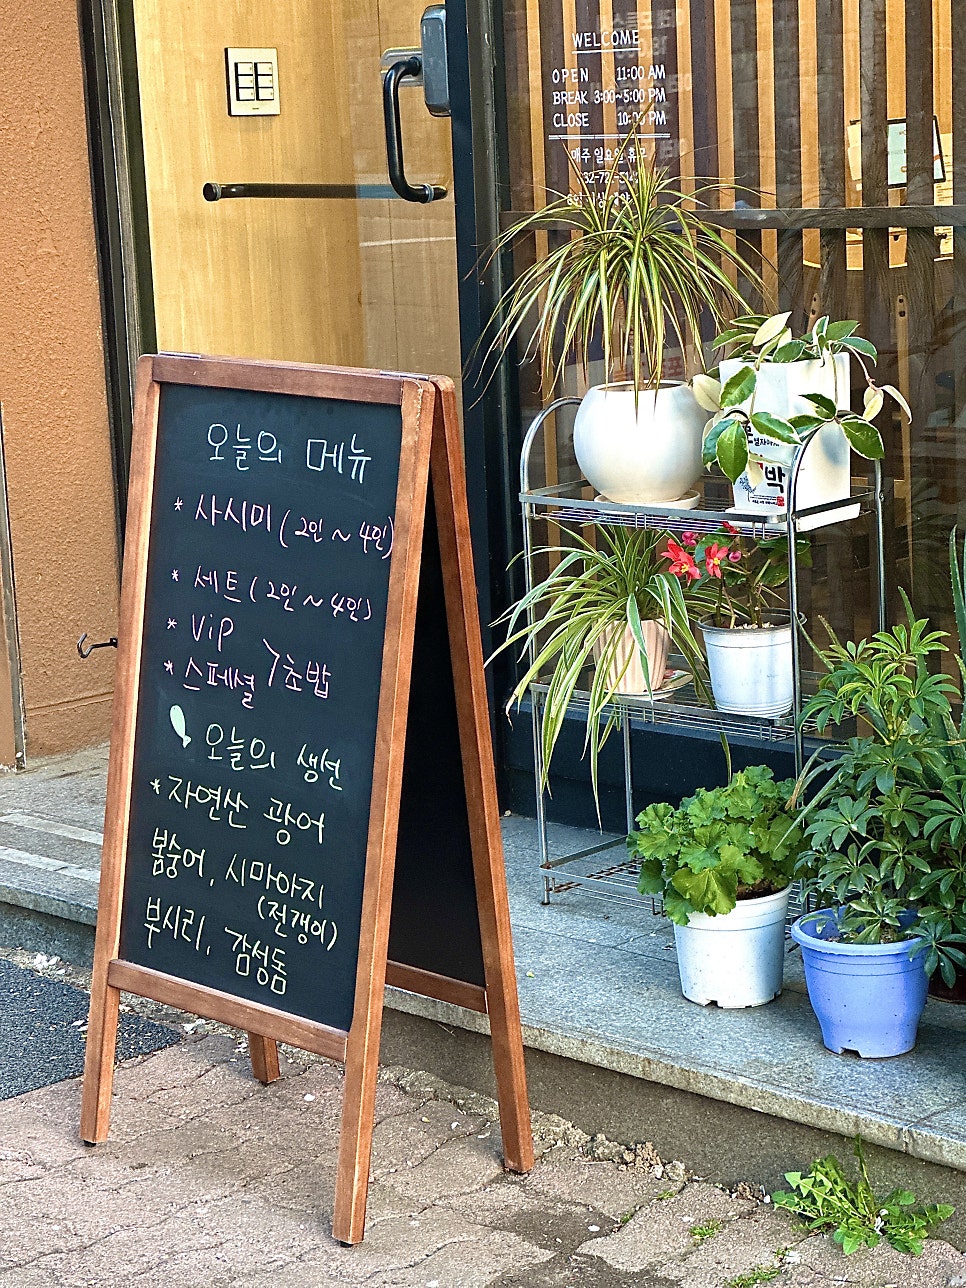 WELCOME
OPEN 11:00 AM
BREAK 3:00~5:00 PM
CLOSE 10:00 PM
매주 일요일 휴무
오늘의 메뉴
* 사시미 (2인 ~ 4인)
* 세트 (2인 ~ 4인)
* Vip
* 스페셜 > 초밥
오늘의 생선
* 자연산 광어
봄숭어, 시마아지
(전갱이)
부시리, 감성돔
박